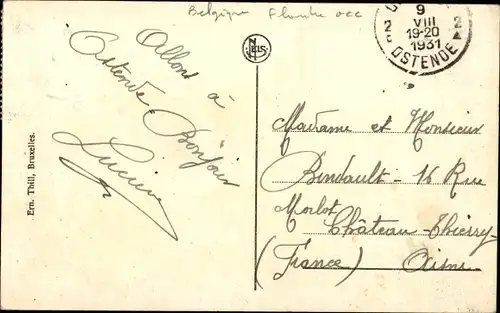 Belgique Flandre occ
9
VIII
19-20
1931
OSTENDE
2
2
NELS
Allons à
Ostende. Bonjour
Lucien
Ern. Thill, Bruxelles.
Madame et Monsieur
Bindault - 16 Rue
Morlot
Château-Thierry-
(France) Aisne